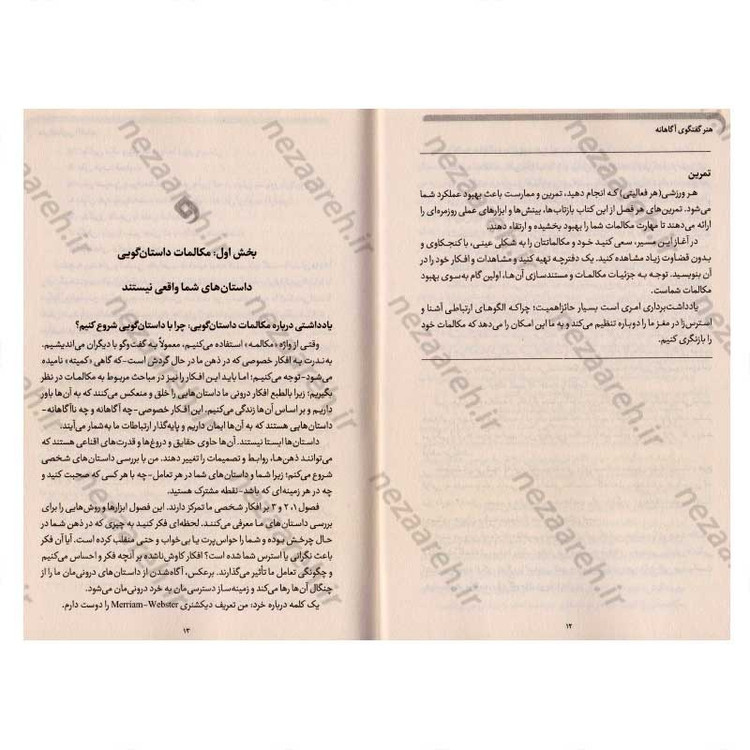 هنر گفتگوی آگاهانه
تمرین
هر ورزشی(هر فعالیتی) که انجام دهید، تمرین و ممارست باعث بهبود عملکرد شما
می‌شود. تمرین‌های هر فصل از این کتاب بازتاب‌ها، بینش‌ها و ابزارهای عملی روزمره‌ای را
ارائه می‌دهند تا مهارت مکالمات شما را بهبود بخشیده و ارتقاء دهند.
در آغاز این مسیر، سعی کنید خود و مکالماتتان را به شکلی عینی، با کنجکاوی و
بدون قضاوت زیاد مشاهده کنید. یک دفترچه تهیه کنید و مشاهدات و افکار خود را در
آن بنویسید. توجه به جزئیات مکالمات و مستندسازی آن‌ها، اولین گام به‌سوی بهبود
مکالمات شماست.
یادداشت‌برداری امری است بسیار حائزاهمیت؛ چراکه الگوهای ارتباطی آشنا و
استرس‌زا در مغز ما را دوباره تنظیم می‌کند و به ما این امکان را می‌دهد که مکالمات خود
را بازنگری کنیم.
۱۲
بخش اول: مکالمات داستان‌گویی
داستان‌های شما واقعی نیستند
یادداشتی درباره مکالمات داستان‌گویی: چرا با داستان‌گویی شروع کنیم؟
وقتی از واژه «مکالمه» استفاده می‌کنیم، معمولاً به گفت‌وگو با دیگران می‌اندیشیم.
به‌ندرت به افکار خصوصی که در ذهن ما در حال گردش است-که گاهی «کمیته» نامیده
می‌شود-توجه می‌کنیم؛ اما باید این افکار را نیز در مباحث مربوط به مکالمات در نظر
بگیریم؛ زیرا بالطبع افکار درونی ما داستان‌هایی را خلق و منعکس می‌کنند که به آن‌ها باور
داریم و بر اساس آن‌ها زندگی می‌کنیم. این افکار خصوصی-چه آگاهانه و چه ناآگاهانه-
داستان‌هایی هستند که به آن‌ها ایمان داریم و پایه‌گذار ارتباطات ما به‌شمار می‌آیند.
داستان‌ها ایستا نیستند. آن‌ها حاوی حقایق و دروغ‌ها و قدرت‌های اقناعی هستند که
می‌توانند ذهن‌ها، روابط و تصمیمات را تغییر دهند. من با بررسی داستان‌های شخصی
شروع می‌کنم؛ زیرا شما و داستان‌های شما در هر تعامل-چه با هر کسی که صحبت کنید و
چه در هر زمینه‌ای که باشد-نقطه مشترک هستید.
فصول ۱،۲ و ۳ بر افکار شخصی ما تمرکز دارند. این فصول ابزارها و روش‌هایی را برای
بررسی داستان‌های ما معرفی می‌کنند. لحظه‌ای فکر کنید به چیزی که در ذهن شما در
حال چرخش بوده و شما را حواس‌پرت یا بی‌خواب و حتی منقلب کرده است. آیا آن فکر
باعث نگرانی یا استرس شما شده است؟ افکار کاوش‌نشده بر آنچه فکر و احساس می‌کنیم
و چگونگی تعامل ما تأثیر می‌گذارند. برعکس، آگاه‌شدن از داستان‌های درونی‌مان ما را از
چنگال آن‌ها رها می‌کند و زمینه‌ساز دسترسی‌مان به خرد درونی‌مان می‌شود.
یک کلمه درباره خرد: من تعریف دیکشنری Merriam-Webster را دوست دارم.
۱۳
nezaareh.ir
nezaareh.ir
nezaareh.ir
nezaareh.ir
nezaareh.ir
nezaareh.ir
nezaareh.ir